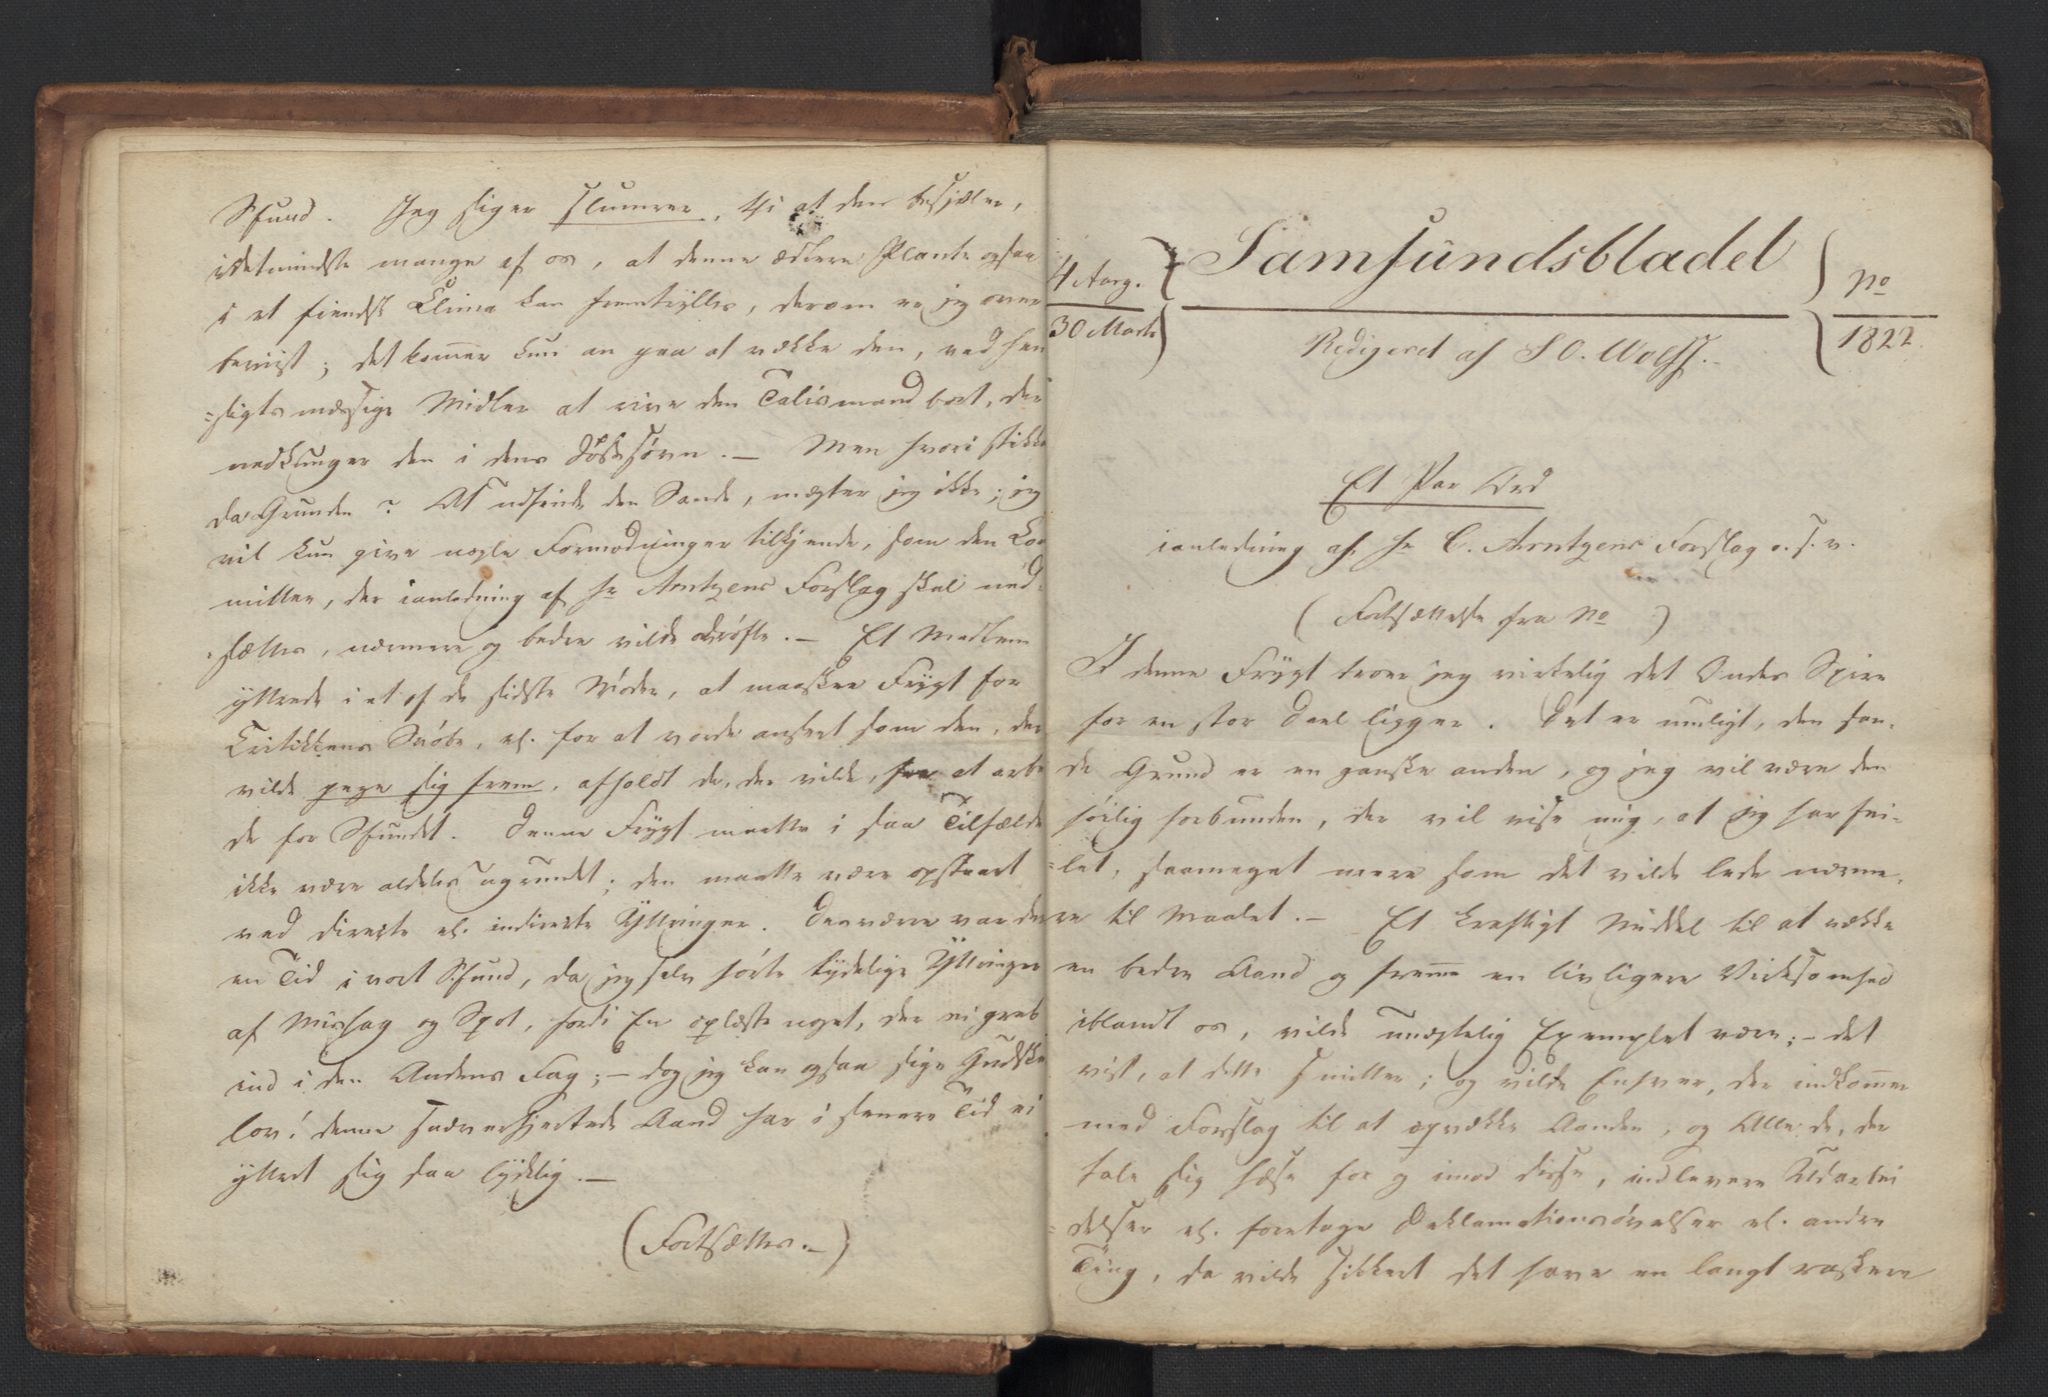 Sfund. Jeg siger slumrer, thi at den besjæler,
idetmindste mange af os, at denne ædlere Plante ogsaa
i et fiendsk Clima kan fremtrylles, derom er jeg over
beviist; det kom̅er kun an paa at vække den, ved hen
=sigtsmæssige Midler at rive den Talismand bort, der
nedtynger den i dens Dødssøvn. — Men hvori stikker
da Grunden? At udfinde den Sande, mægter jeg ikke; jeg
vil kun give nogle Formodninger tilkjende, som den Co
mittee, der i anledning af Hr Arntzens Forslag skal ned-
=sættes, nærmere og bedre vilde drøfte. — Et Medlem
yttrede i et af de sidste Møder, at maaskee Frygt for
Critikkens Svøbe, el. for at vorde anseet som den, der
vilde pege sig frem, afholdt de, der vilde, fra at arbei
de for Sfundet. Denne Frygt maatte i saa Tilfælde
ikke være aldeles ugrundet; den maatte være opstaaet
ved directe el. indirecte Yttringer. Desværre var der
en Tid i vort Sfund, da jeg selv hørte tydelige Yttringer
af Mishag og Spot, fordi En oplæste noget, der ei greb
ind i den Andens Fag; — dog jeg kan ogsaa sige Gudskee
lov! denne snæverhjertede Aand har i senere Tid ei
yttret sig saa lydelig. —
(Fortsættes. —)
4 Aarg.
30 Marts
Samfundsbladet
No
1822.
Redigeret af S O. Wolff. —
Et Par Ord
i anledning af Hr C. Arntzens Forslag o. s. v.
(Fortsættelse fra No )
I denne Frygt troer jeg virkelig det Ondes Spire
for en stor Deel ligger. Det er muligt, den san-
de Grund er en ganske anden, og jeg vil være den
høilig forbunden, der vil vise mig, at jeg har fei-
=let, saameget mere som det vilde lede nærme-
re til Maalet. — Et kraftigt Middel til at vække
en bedre Aand og frem̅e en livligere Virksomhed
iblandt os, vilde unægtelig Exemplet være; — det
vist, at dette smitter; og vilde Enhver, der indkom̅er
med Forslag til at opvække Aanden, og Alle de, der
tale sig hæse for og imod disse, indlevere Udarbei
=delser el. foretage Deklamationsøvelser el. andre
Ting, da vilde sikkert det have en langt raskere